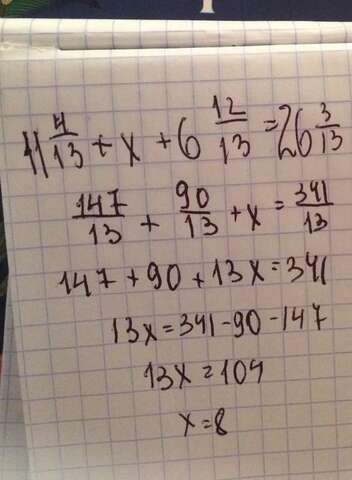 11 4/13 + x + 6 12/13 = 26 3/13
147/13 + 90/13 + x = 341/13
147 + 90 + 13x = 341
13x = 341 - 90 - 147
13x = 104
x = 8